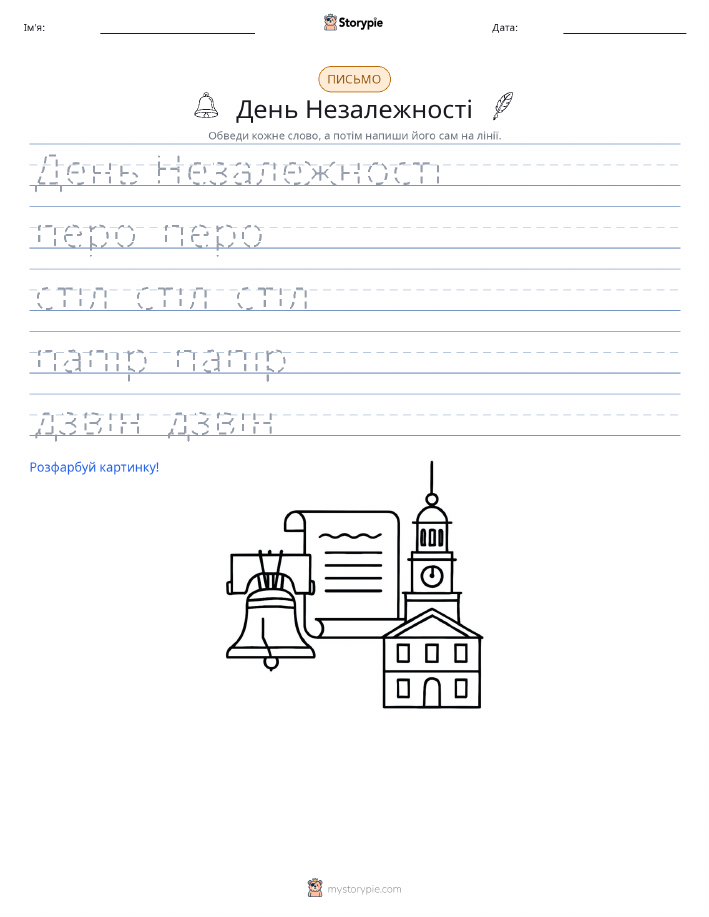 Ім'я:
Storypie
Дата:
ПИСЬМО
День Незалежності
Обведи кожне слово, а потім напиши його сам на лінії.
День Незалежності
перо перо
стіл стіл стіл
папір папір
дзвін дзвін
Розфарбуй картинку!
mystorypie.com